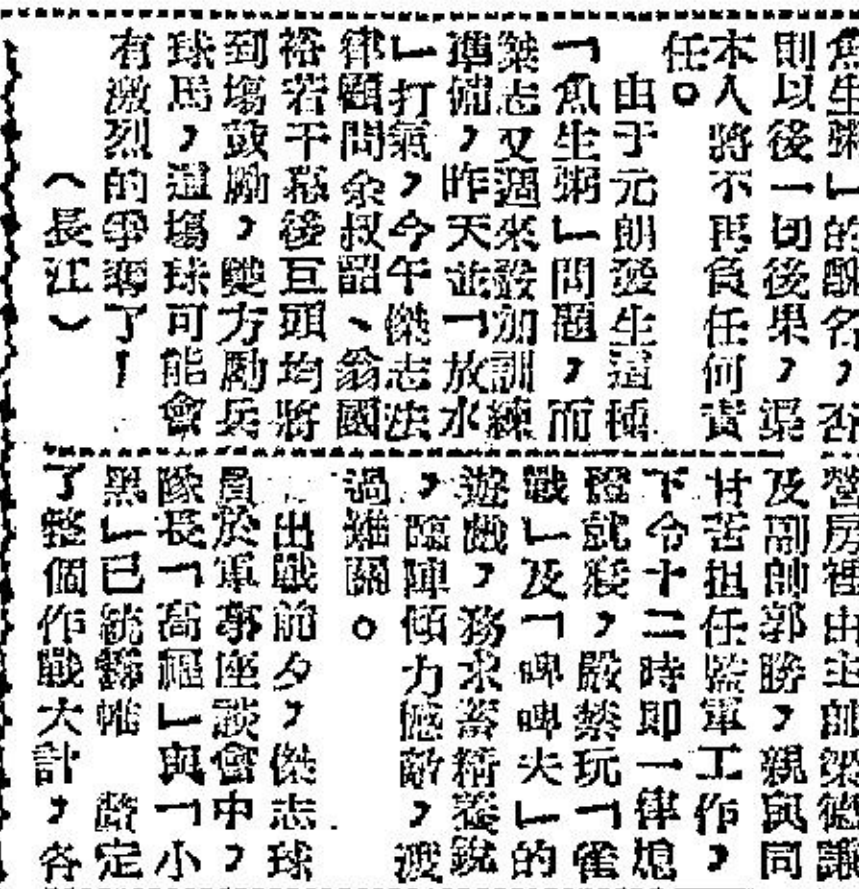 魚生粥」的醜名，否
則以後一切後果，渠
本人將不再負任何責
任。
由于元朗發生這種
「魚生粥」問題，而
傑志又週來設加訓練
準備，昨天並「放水
」打氣，今午傑志法
律顧問余叔韶、翁國
裕若干幕後巨頭均將
到塲鼓勵，雙方勵兵
球馬，這塲球可能會
有激烈的爭奪了！
（長江）
營房裡由主帥梁德謙
及副帥郭勝，親與同
甘苦担任監軍工作，
下令十二時即一律熄
燈就寢，嚴禁玩「雀
戰」及「啤啤夫」的
遊戲，務求蓄精養銳
，臨陣傾力憾敵，渡
過難關。
出戰前夕，傑志球
員於軍事座談會中，
隊長「高腿」與「小
黑」已統籌帷 啓定
了整個作戰大計，各